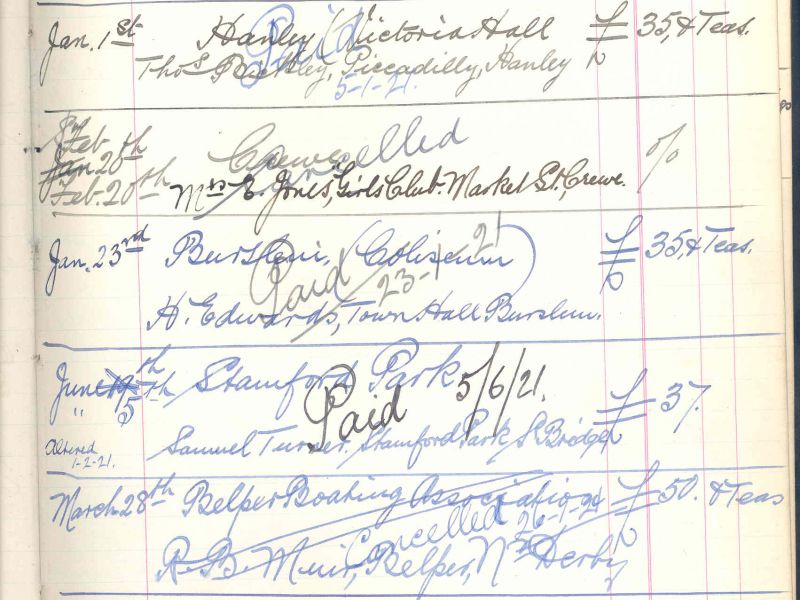 Jan. 1st Hanley (Victoria Hall £ 35, & Teas.
Paid
Thos Buckley, Piccadilly, Hanley
5-1-21.
8 Feb
Jan 28th Crewe % 
Cancelled
Feb. 20th Mrs E. Jones, Girls Club. Market St, Crewe.
Jan. 23rd Burslem, (Coliseum) £ 35, & Teas.
Paid 23-1-21
H. Edwards, Town Hall Burslem.
June 19th Stamford Park £ 37.
" 5th Paid 5/6/21.
Altered 1-2-21.
Samuel Turner. Stamford Park, S. Bridge
March 28th Belper Boating Association £ 50. & Teas
Cancelled 26-1-21
R. B. Muir, Belper, Nr Derby